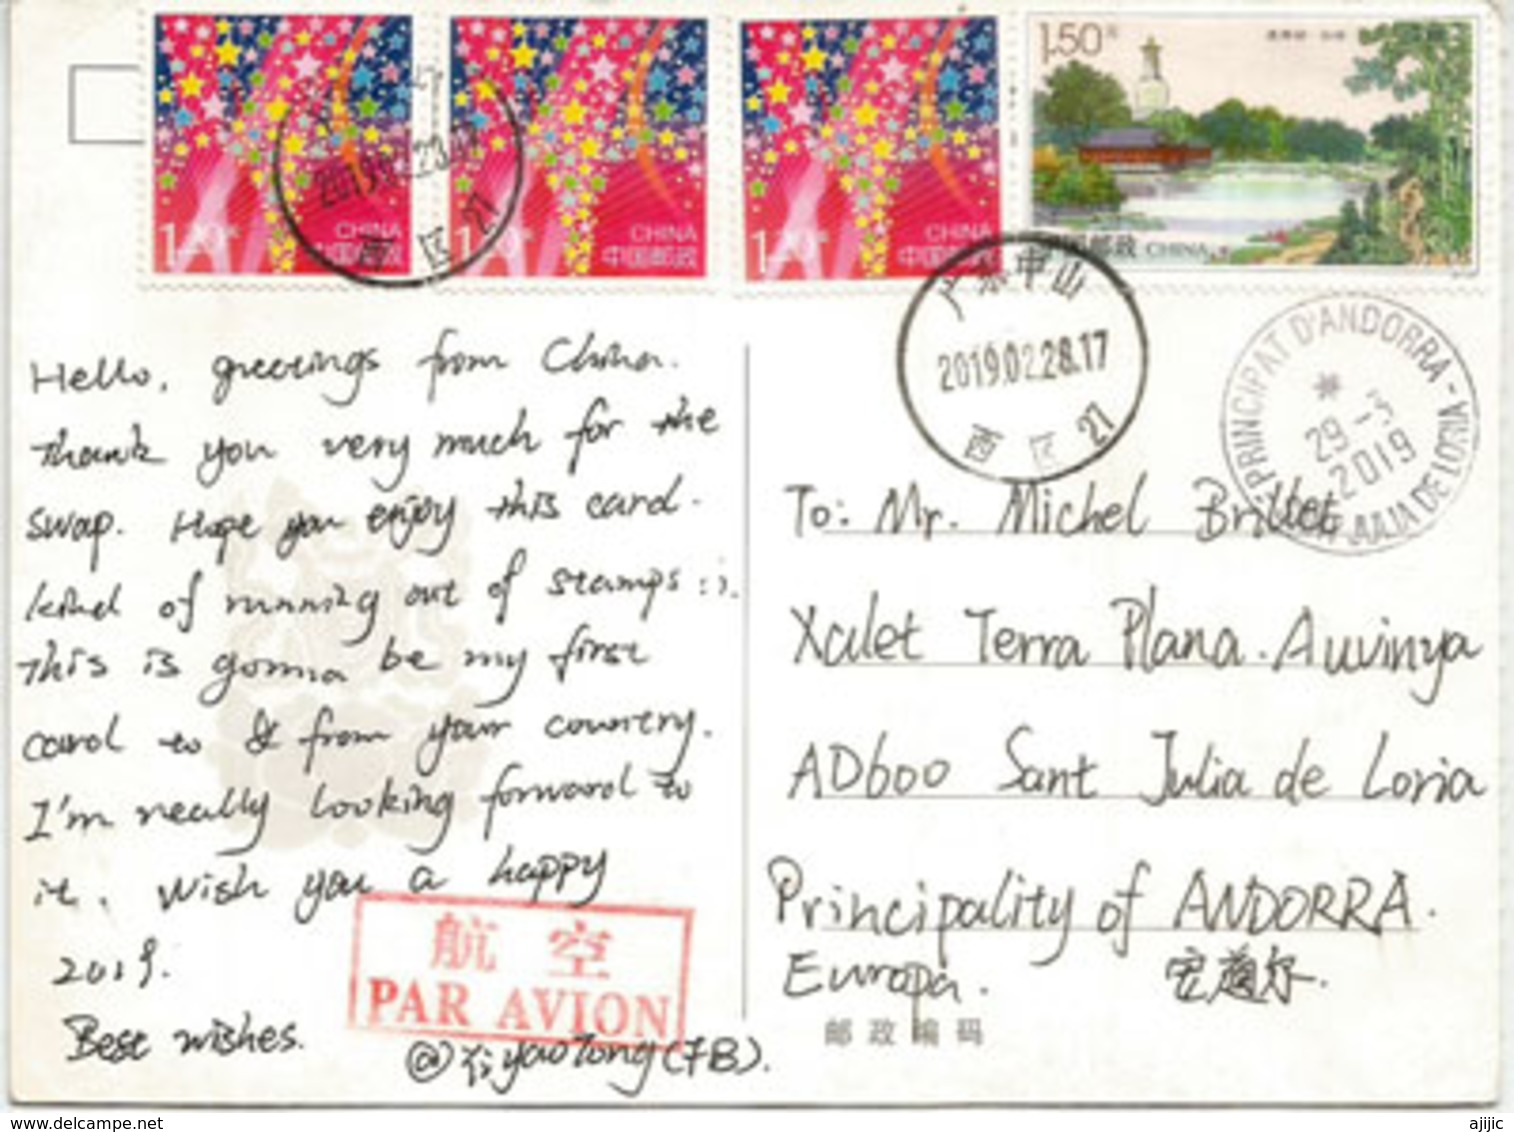 1.50元
CHINA
中国邮政
1.20元
CHINA
中国邮政
1.20元
CHINA
中国邮政
1.20元
中国邮政 CHINA
2019.02.28.17
西 区 27
广东中山
2019.02.28.17
西 区 27
PRINCIPAT D'ANDORRA
29 -3- 2019
JULIA DE LORIA
Hello, greetings from China.
thank you very much for the
swap. Hope you enjoy this card.
kind of running out of stamps :).
this is gonna be my first
card to & from your country.
I'm really looking forward to
it. Wish you a happy
2019.
Best wishes.
航 空
PAR AVION
To: Mr. Michel Brillet
Xalet Terra Plana. Auvinya
AD600 Sant Julia de Loria
Principality of ANDORRA.
Europa.
安道尔.
邮政编码
@ yaotong (FB).
www.delcampe.net
ajijic